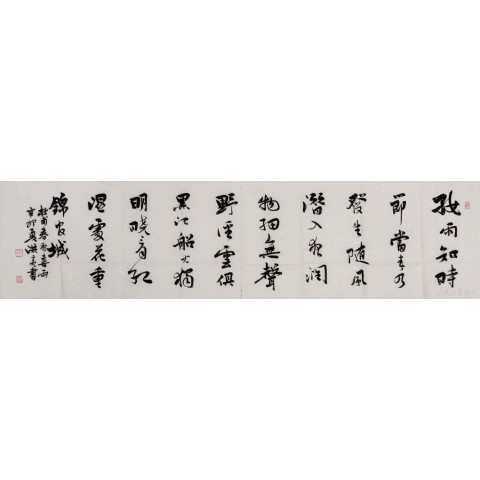 好雨知時
節當春乃
發生隨風
潛入夜潤
物細無聲
野徑雲俱
黑江船火獨
明曉看紅
濕處花重
錦官城
杜甫春夜喜雨
辛卯夏洪書